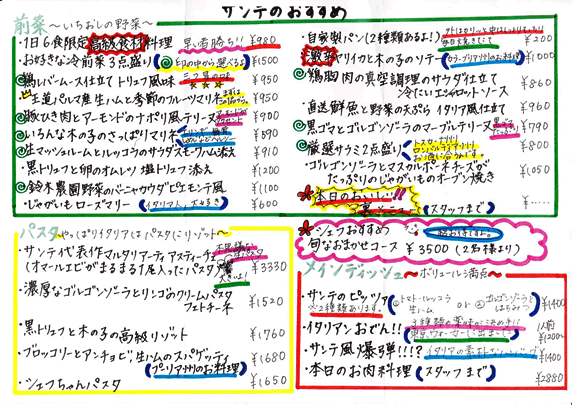 サンテのおすすめ
前菜 〜いちおしの野菜〜
・1日6食限定高級食材料理 早い者勝ち!! ¥980
・お好きな冷前菜3点盛り 印の中から選べる ¥1500
鶏レバームース仕立て トリュフ風味 ¥950
王道パルマ産生ハムと季節のフルーツマリネ ¥950
豚ひき肉とアーモンドのナポリ風テリーヌ ¥900
いろんな木の子のさっぱりマリネ ¥690
生マッシュルームとルッコラのサラダスモークハム添え ¥910
・黒トリュフと卵のオムレツ 塩トリュフ添え ¥1200
鈴木農園野菜のバーニャカウダピエモンテ風 ¥1100
・じゃがいもローズマリー (イタリア人、大好き) ¥600
・自家製パン(2種類あるよ!) ¥200
激辛サワイカと木の子のソテー ¥1000
鶏胸肉の真空調理のサラダ仕立て
冷たいエシャロットソース ¥860
・直送鮮魚と野菜の天ぷら イタリア風仕立て ¥960
黒ゴマとゴルゴンゾーラのマーブルテリーヌ ¥790
厳選サラミ2点盛り ¥800
・ゴルゴンゾーラとマスカルポーネチーズが
たっぷりのじゃがいものオーブン焼き ¥1050
本日のおいしい!!
裏メニュー (スタッフまで) ¥……
シェフおすすめ
旬なおまかせコース ¥3500(2名様より)
パスタ やっぱりイタリアはパスタにリゾット〜
・サンテ代表作マルタリアーティ アスティーチェ
(オマールエビがまるまる1尾入ったパスタ) ¥3330
・濃厚なゴルゴンゾーラとリンゴのクリームパスタ
フェトチーネ ¥1520
・黒トリュフと木の子の高級リゾット ¥1760
・ブロッコリーとアンチョビ 生ハムのスパゲッティ ¥1680
(プーリア州のお料理)
・シェフちゃんパスタ ¥1650
メインディッシュ 〜ボリューム満点〜
・サンテのピッツァ ①トマト・ルッコラ 生ハム or ②ゴルゴンゾーラとはちみつ ¥1400
※2種類あります。
・イタリアンおでん!! 1人前 ¥1200〜
・サンテ風爆弾!!!? ¥1400
・本日のお肉料理 (スタッフまで) ¥2880